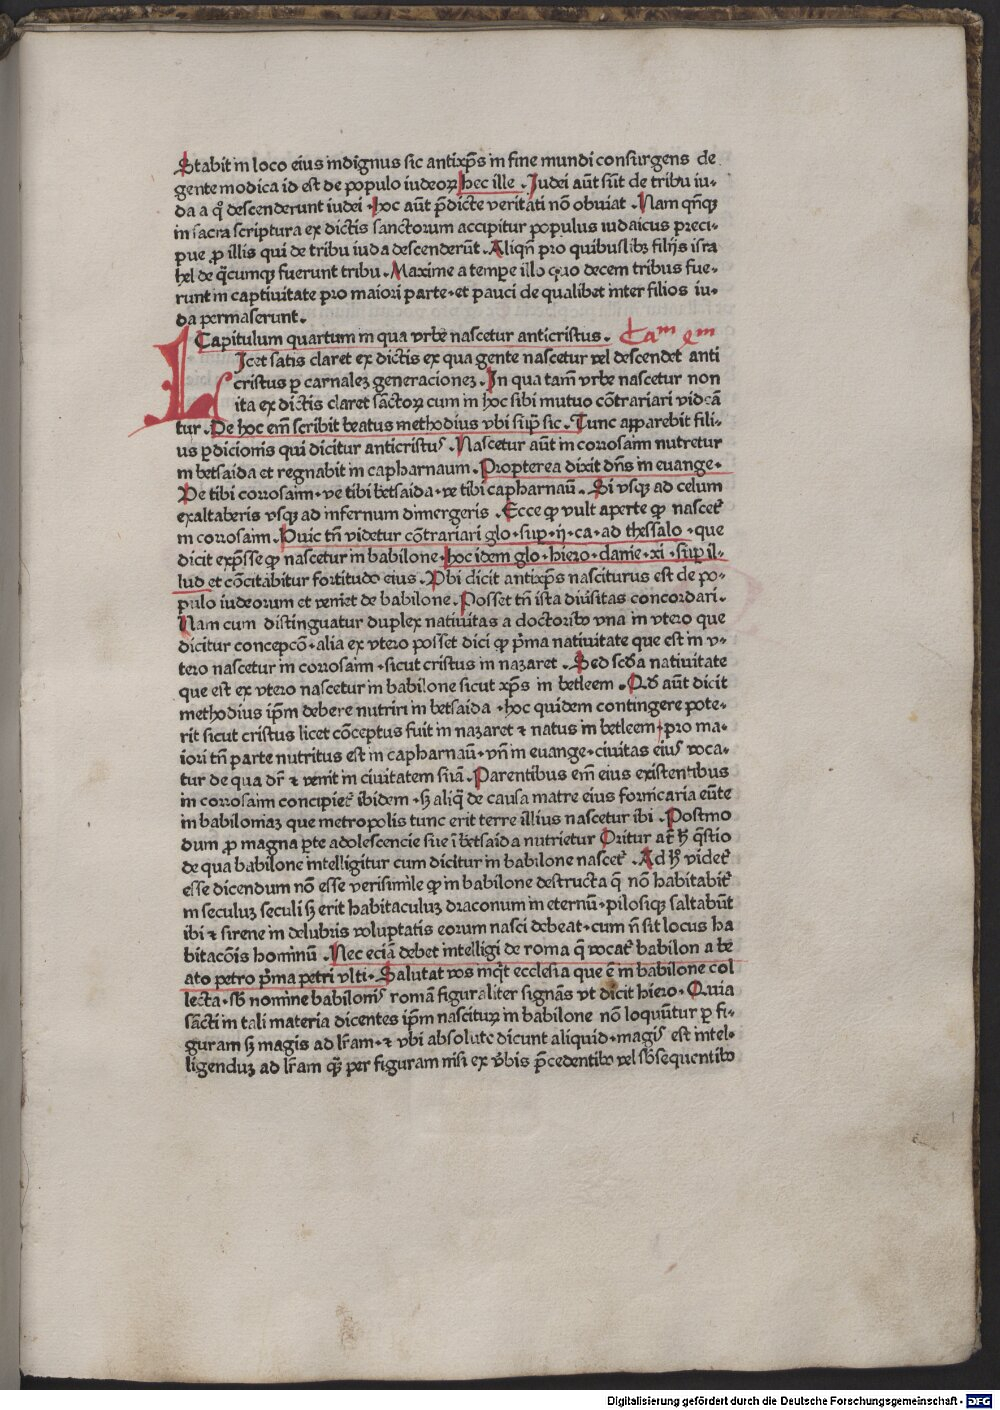 Stabit in loco eius indignus sic antixp̄s in fine mundi consurgens de
gente modica id est de populo iudeoꝝ hec ille . Iudei aūt sūt de tribu iu-
da a qͦ descenderunt iudei . hoc aūt p̄dicte veritati nō obuiat . Nam qn̄qꝫ
in sacra scriptura ex dictis sanctorum accipitur populus iudaicus preci-
pue ꝓ illis qui de tribu iuda descenderūt . Aliqn̄ pro quibuslibꝫ filijs isra
hel de q̄cumqꝫ fuerunt tribu . Maxime a tempe illo quo decem tribus fue-
runt in captiuitate pro maiori parte . et pauci de qualibet inter filios iu-
da permaserunt .
Capitulum quartum in qua vrbe nascetur anticristus . Caᵐ qᵐ
LIcet satis claret ex dictis ex qua gente nascetur vel descendet anti
cristus p carnaleꝫ generacioneꝫ . In qua tam̄ vrbe nascetur non
ita ex dictis claret sāctoꝝ cum in hoc sibi mutuo cōtrariari videā
tur . De hoc em̄ scribit beatus methodius vbi sup̄ sic . Tunc apparebit fili-
us ꝑdicionis qui dicitur anticristuꝰ . Nascetur aūt in corrosaim nutretur
in betsaida et regnabit in capharnaum . Propterea dixit dn̄s in euange .
Ve tibi corrosaim . ve tibi betsaida . ve tibi capharnaū . Si vsqꝫ ad celum
exaltaberis vsqꝫ ad infernum dimergeris . Ecce ꝙ vult aperte ꝙ nascet᷑
in corrosaim . Huic tn̄ videtur cōtrariari glo . suꝑ . ij . ca . ad thessalo . que
dicit exp̄sse ꝙ nascetur in babilone . hoc idem glo . hiero . danie . xi . sup il-
lud et cōcitabitur fortitudo eius . Vbi dicit antixp̄s nasciturus est de po-
pulo iudeorum et veniet de babilone . Posset tn̄ ista diu̇sitas concordari .
Nam cum distinguatur duplex natiuitas a doctoribꝰ vna in vtero que
dicitur concepcō . alia ex vtero posset dici ꝙ p̄ma natiuitate que est in v-
tero nascetur in corrosaim . sicut cristus in nazaret . Sed scd̄a natiuitate
que est ex vtero nascetur in babilone sicut xp̄s in betleem . Qd̄ aūt dicit
methodius ip̄m debere nutriri in betsaida . hoc quidem contingere pote-
rit sicut cristus licet cōceptus fuit in nazaret ⁊ natus in betleem . pro ma-
iori tn̄ parte nutritus est in capharnaū . vn̄ in euange . ciuitas eiuꝰ voca-
tur de qua dr̄ ⁊ venit in ciuitatem suā . Parentibus em̄ eius existentibus
in corrosaim concipiet᷑ ibidem . sꝫ aliq̄ de causa matre eius fornicaria eūte
in babiloniaꝫ que metropolis tunc erit terre illius nascetur ibi . Postmo
dum ꝓ magna p̄te adolescencie sue ī betsaida nutrietur Oritur at̄ hͦ q̄stio
de qua babilone intelligitur cum dicitur in babilone nascet᷑ . Ad hͦ videt᷑
esse dicendum nō esse verisimile ꝙ in babilone destructa q̄ nō habitabit᷑
in seculuꝫ seculi sꝫ erit habitaculuꝫ draconum in eternū . pilosiqꝫ saltabūt
ibi ⁊ sirene in delubris voluptatis eorum nasci debeat . cum n̄ sit locus ha
bitacōis hominū . Nec eciā debet intelligi de roma q̄ vocat᷑ babilon a be
ato petro p̄ma petri vlti . Salutat vos inq̇t ecclesia que ē in babilone col
lecta . sb̄ nomine babilonꝭ romā figuraliter signās vt dicit hiero . Quia
sācti in tali materia dicentes ip̄m nasciturꝫ in babilone nō loquūtur p fi-
guram sꝫ magis ad lr̄am . ⁊ vbi absolute dicunt aliquid . magꝭ est intel-
ligenduꝫ ad lr̄am qꝫ̄ per figuram nisi ex v̄bis p̄cedentibꝰ vel sb̄sequentibꝰ
Digitalisierung gefördert durch die Deutsche Forschungsgemeinschaft - DFG